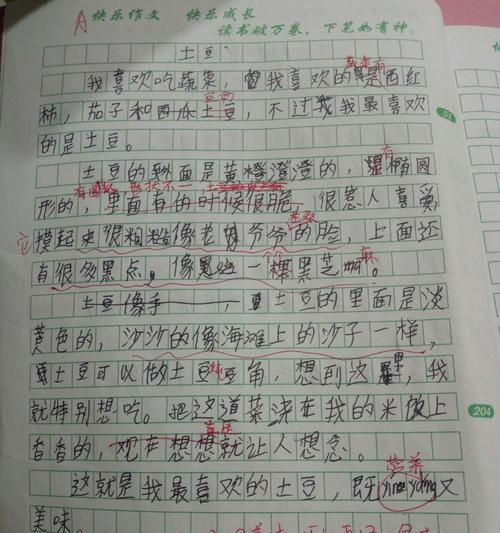 A 快乐作文 快乐成长
读书破万卷，下笔如有神。
土豆
我喜欢吃蔬菜，我喜欢的是西红
蔬菜有
柿，茄子和西瓜土豆，不过我最喜欢
的是土豆。
81
土豆的外面是黄橙澄澄的，是椭圆
有
形的，里面有的时候很脆，很惹人喜爱，
有圆 形状不一
它摸起来很粗糙像老爷爷的脸，上面还
有很多黑点，像一棵黑芝ma。
个 麻
土豆像手 土豆的里面是淡
黄色的，沙沙的像海滩上的沙子一样，
土豆可以做土豆豆角，想到这里，我
就特别想吃。把这道菜浇在我的米饭上
204
香香的，现在想想就让人想念。
这就是我最喜欢的土豆，既ying yang又
营养
美味